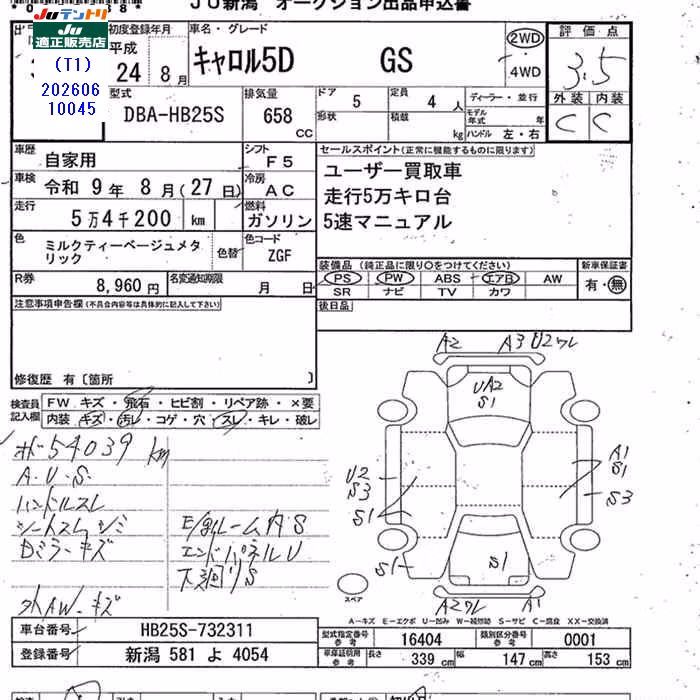 JU新潟 オークション出品申込書
JUテントリ
JU
適正販売店
(T1)
202606
10045
初度登録年月
平成
24年8月
車名・グレード
キャロル5D GS
2WD
4WD
評価点
3.5
外装 内装
C C
型式
DBA-HB25S
排気量
658
CC
ドア
5
形状
定員
4人
積載
kg
ディーラー・並行
モデル年式 年
ハンドル 左・右
車歴
自家用
シフト
F5
セールスポイント(正常に機能するものに限ります)
ユーザー買取車
走行5万キロ台
5速マニュアル
車検
令和 9年 8月(27日)
冷房
AC
走行
5万4千200 km
燃料
ガソリン
色
ミルクティーベージュメタリック
色替
色コード
ZGF
装備品(純正品に限り○をつけてください)
PS PW ABS エアB AW
SR ナビ TV カワ
新車保証書
有・無
R券
8,960円
名変通知期限
月 日
後日品
注意事項申告欄(不具合内容等は具体的に記入して下さい)
修復歴 有〔箇所 〕
検査員記入欄
FW キズ・飛石・ヒビ割・リペア跡・×要
内装 キズ・汚レ・コゲ・穴・スレ・キレ・破レ
54039 km
A・U・S
ハンドルスレ
シートスレ シミ
Dミラーキズ
外AW・キズ
E/gルーム内S
エンドパネルU
下廻りS
A2 A3 U2ワレ
UA2
S1
U2
S3
S1
A1
S1
S3
S1
S1
A2ワレ A1
スペア
A-キズ E-エクボ U-凹み W-補修跡 S-サビ C-腐食 XX-交換済
車台番号
HB25S-732311
登録番号
新潟 581 よ 4054
型式指定番号 参考
16404
類別区分番号 参考
0001
車庫証明用 参考
長さ 339 cm 幅 147 cm 高さ 153 cm